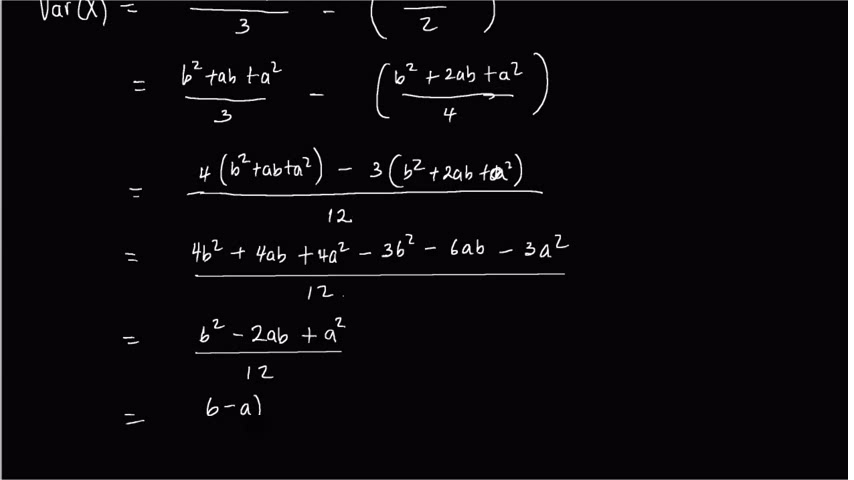 Var(X) = ─── - (───)
3 2
= (b² + ab + a²)/3 - ((b² + 2ab + a²)/4)
= (4(b² + ab + a²) - 3(b² + 2ab + a²))/12
= (4b² + 4ab + 4a² - 3b² - 6ab - 3a²)/12.
= (b² - 2ab + a²)/12
= b - a)